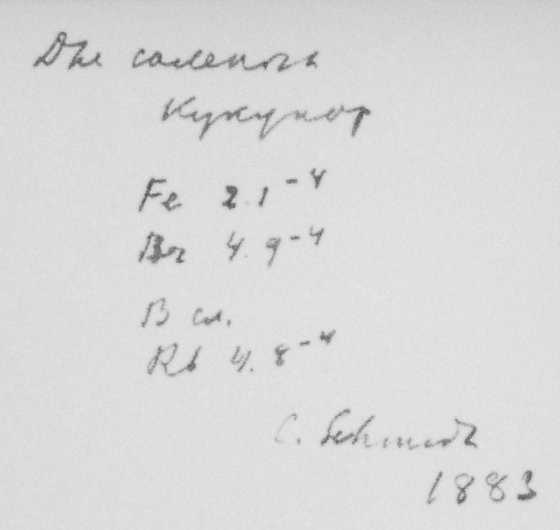 Для соленого
Кукунор
Fe 2.1⁻⁴
Br 4.9⁻⁴
B сл.
Rb 4.8⁻⁴
C. Schmidt
1883